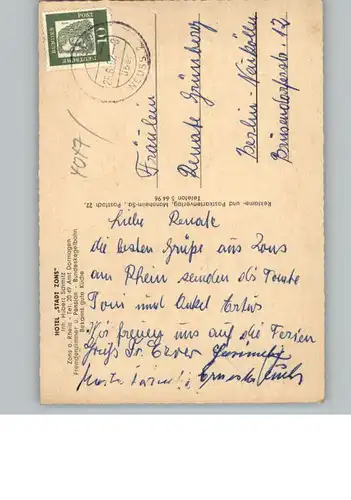 DEUTSCHE
BUNDESPOST
10
NEUSS
über
4047/
Fräulein
Renate Grünberg
Berlin - Neukölln
Brusendorferstr. 12
Reklame- und Postkartenverlag, Mannheim-Sa., Postfach 22,
Telefon 5 64 96
HOTEL „STADT ZONS“
Inh. Hubert Schmitz
Zons a. Rhein - Tel. 20 47 Amt Dormagen
Fremdenzimmer u. Pension - Bundeskegelbahn
Bekannt gute Küche
Liebe Renate
die besten Grüße aus Zons
am Rhein senden dir Tante
Toni und Onkel
Wir freuen uns auf die Ferien
Gruß